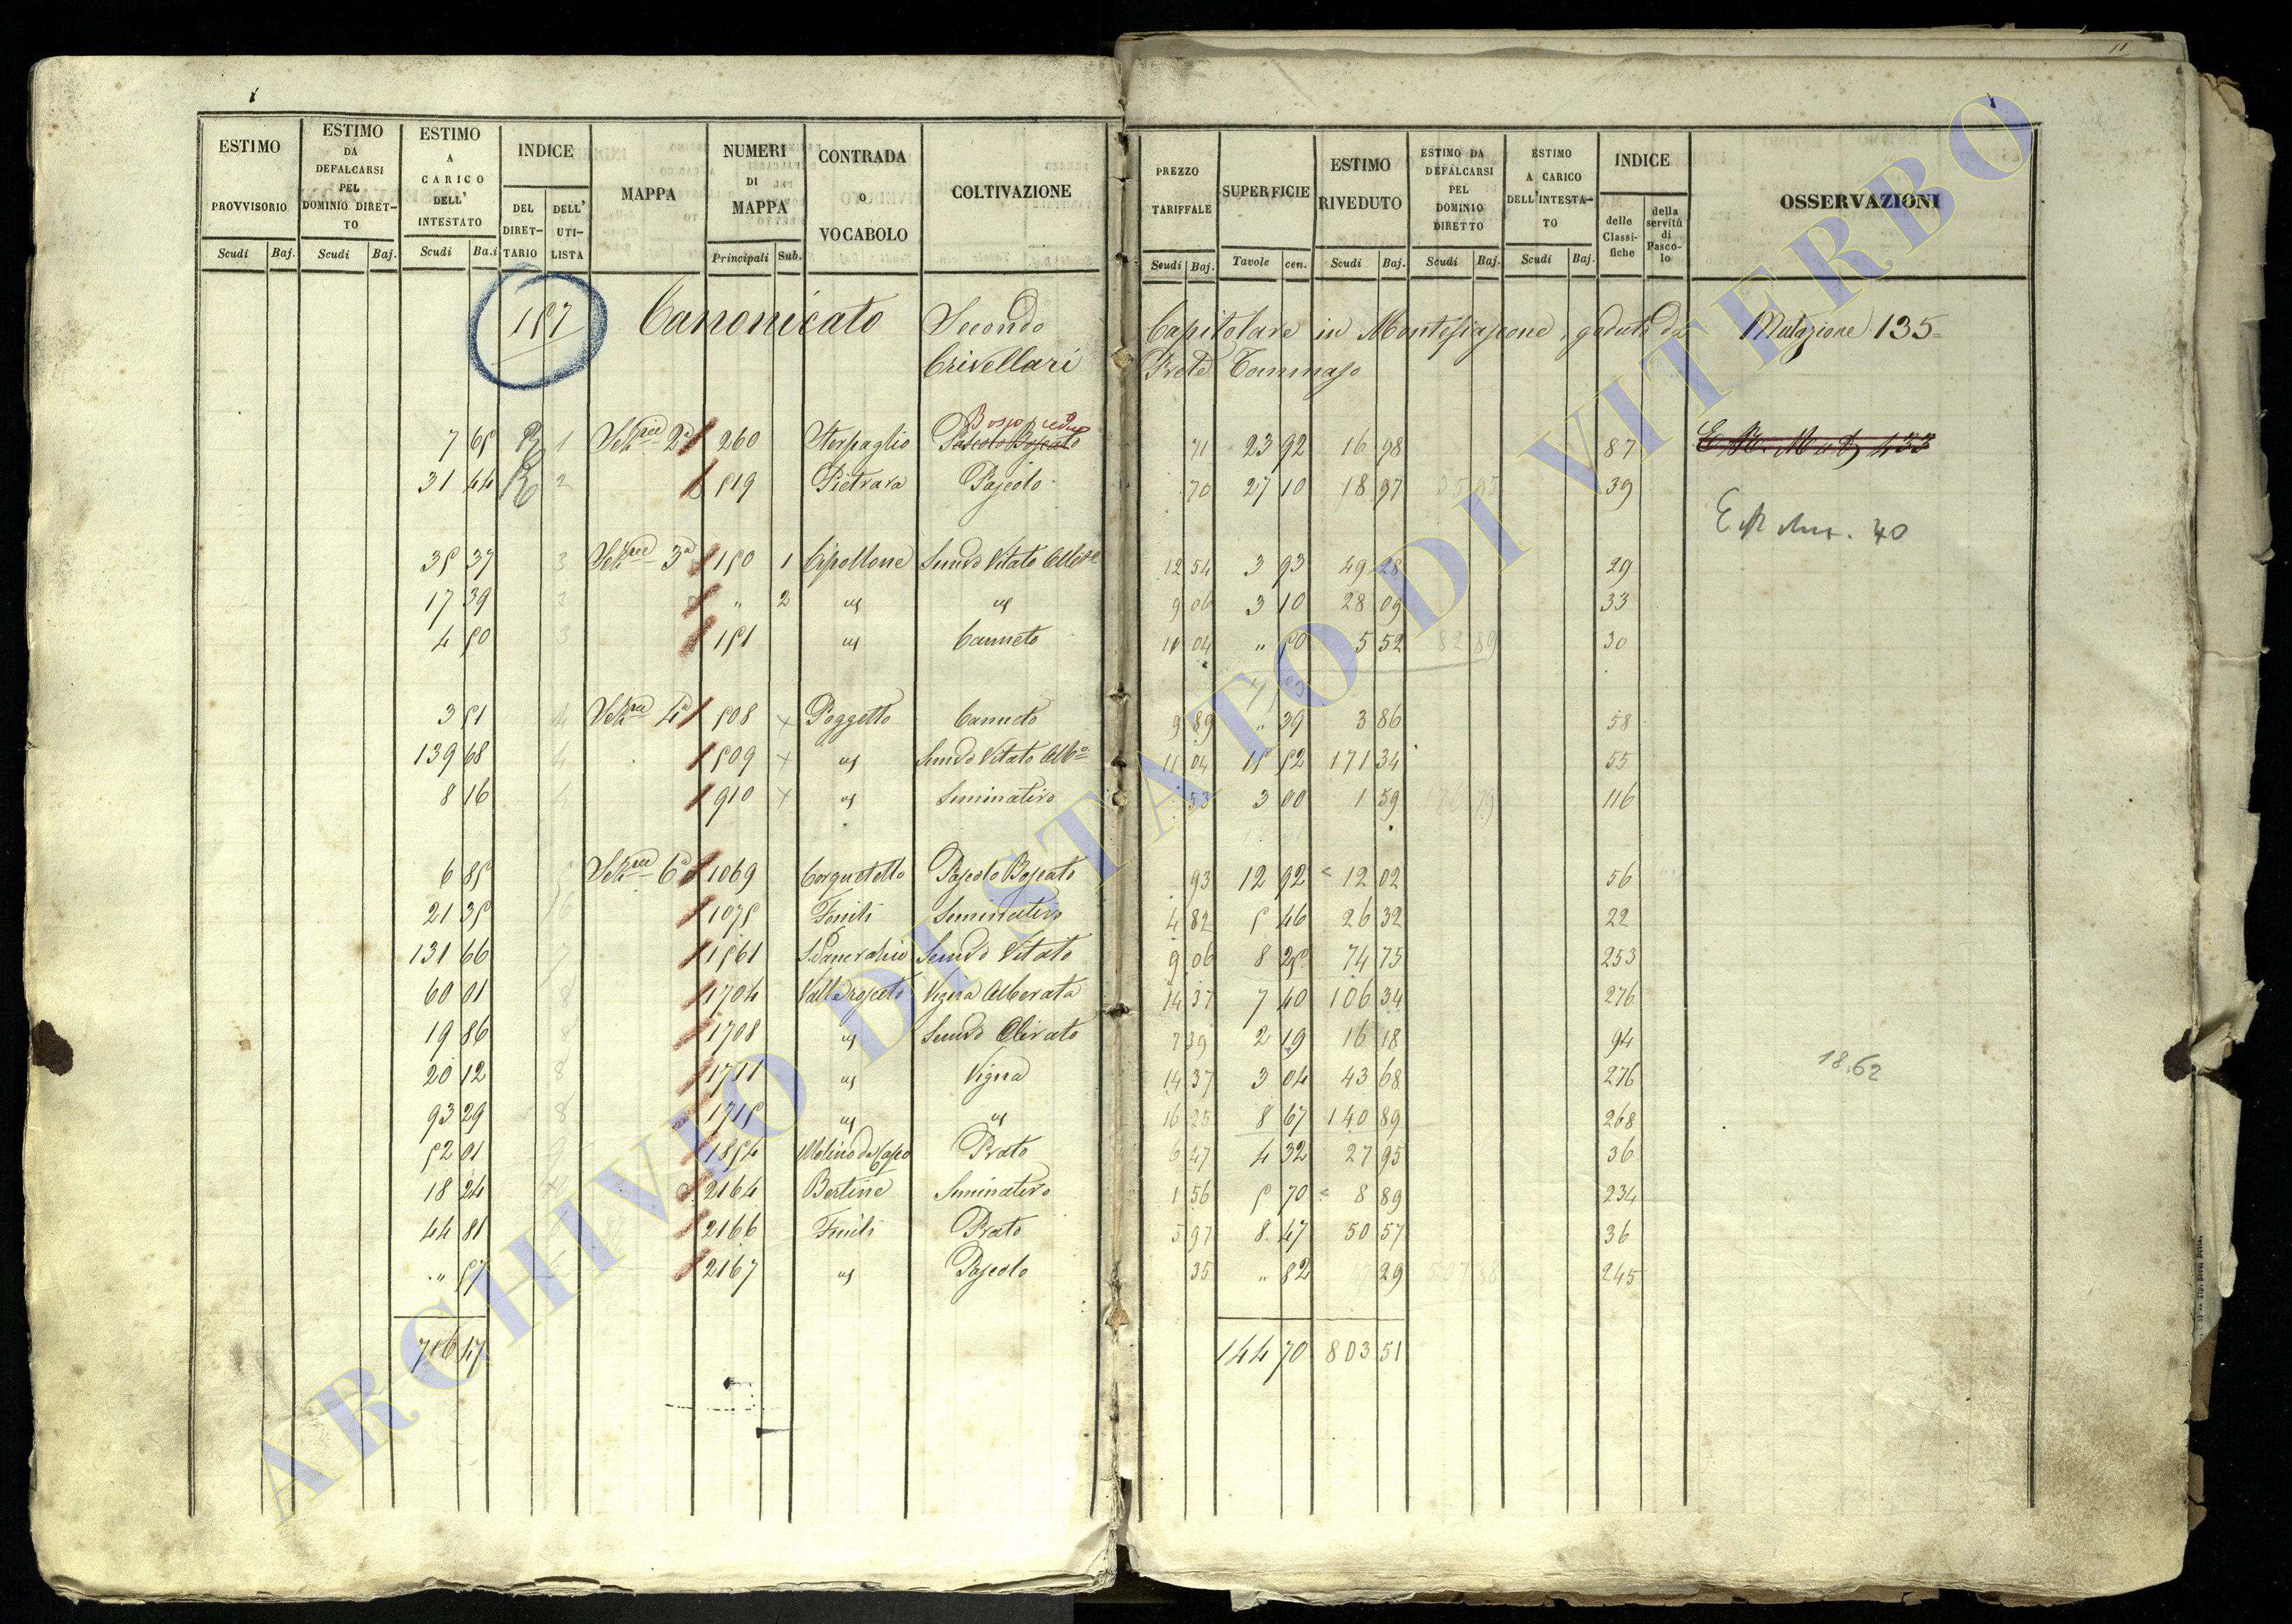 11
ESTIMO PROVVISORIO
ESTIMO DA DEFALCARSI PEL DOMINIO DIRET-TO
ESTIMO A CARICO DELL' INTESTATO
INDICE
DEL DIRET-TARIO
DELL' UTI-LISTA
MAPPA
NUMERI DI MAPPA
CONTRADA o VOCABOLO
COLTIVAZIONE
PREZZO TARIFFALE
SUPERFICIE
ESTIMO RIVEDUTO
ESTIMO DA DEFALCARSI PEL DOMINIO DIRETTO
ESTIMO A CARICO DELL'INTESTA-TO
INDICE
delle Classi-fiche
della servitù di Pasco-lo
OSSERVAZIONI
Scudi Baj. Scudi Baj. Scudi Ba.i Principali Sub. Scudi Baj. Tavole cen. Scudi Baj. Scudi Baj. Scudi Baj.
157 Canonicato Secondo Capitolare in Montefiascone, goduto da Mutazione 135
Crivellari Prete Tommaso
Bosco ceduo
7 65 1 Sez.ne 2a 260 Sterpaglio Pascolo Boscato 71 23 92 16 98 87
31 44 2 519 Pietrara Pascolo 70 27 10 18 97 39
40
35 37 3 Sez.ne 3a 150 1 Cipollone Semvo Vitato 12 54 3 93 49 28 29
17 39 3 " 2 id id 9 06 3 10 28 09 33
4 50 3 151 id Canneto 11 04 " 50 5 52 82 89 30
3 51 4 Sez.ne 4a 508 Poggetto Canneto 9 89 " 39 3 86 58
139 68 4 509 id Semvo Vitato Albo 11 04 15 52 171 34 55
8 16 4 910 id Seminativo 53 3 00 1 59 176 79 116
6 85 Sez.ne 6a 1069 Cerquetello Pascolo Boscato 93 12 92 12 02 56
21 35 6 1075 Fenili Seminativo 4 82 5 46 26 32 22
131 66 7 1561 S. Pancrazio Semvo Vitato 9 06 8 25 74 75 253
60 01 8 1704 Valle rosceto Vigna Alberata 14 37 7 40 106 34 276
19 86 8 1708 id Semvo Olivato 7 39 2 19 16 18 94
20 12 8 1711 id Vigna 14 37 3 04 43 68 276
93 29 8 1715 id id 16 25 8 67 140 89 268
52 01 9 1854 Molino del Capo Prato 6 47 4 32 27 95 36
18 24 2164 Bertine Seminativo 1 56 5 70 8 89 234
44 81 6 2166 Fenili Prato 5 97 8 47 50 57 36
" 57 2167 id Pascolo 35 " 82 29 245
18.62
716 47 144 70 803 51
ARCHIVIO DI STATO DI VITERBO